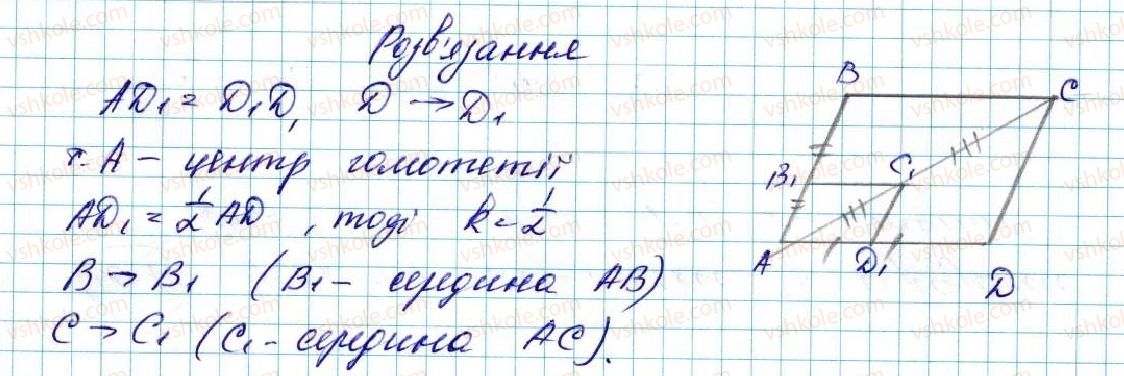 Розв'язання
AD₁ = D₁D, D → D₁
т. A – центр гомотетії
AD₁ = ½ AD, тоді k = ½
B → B₁ (B₁ – середина AB)
C → C₁ (C₁ – середина AC).
B
C
B₁
C₁
A
D₁
D
vshkole.com